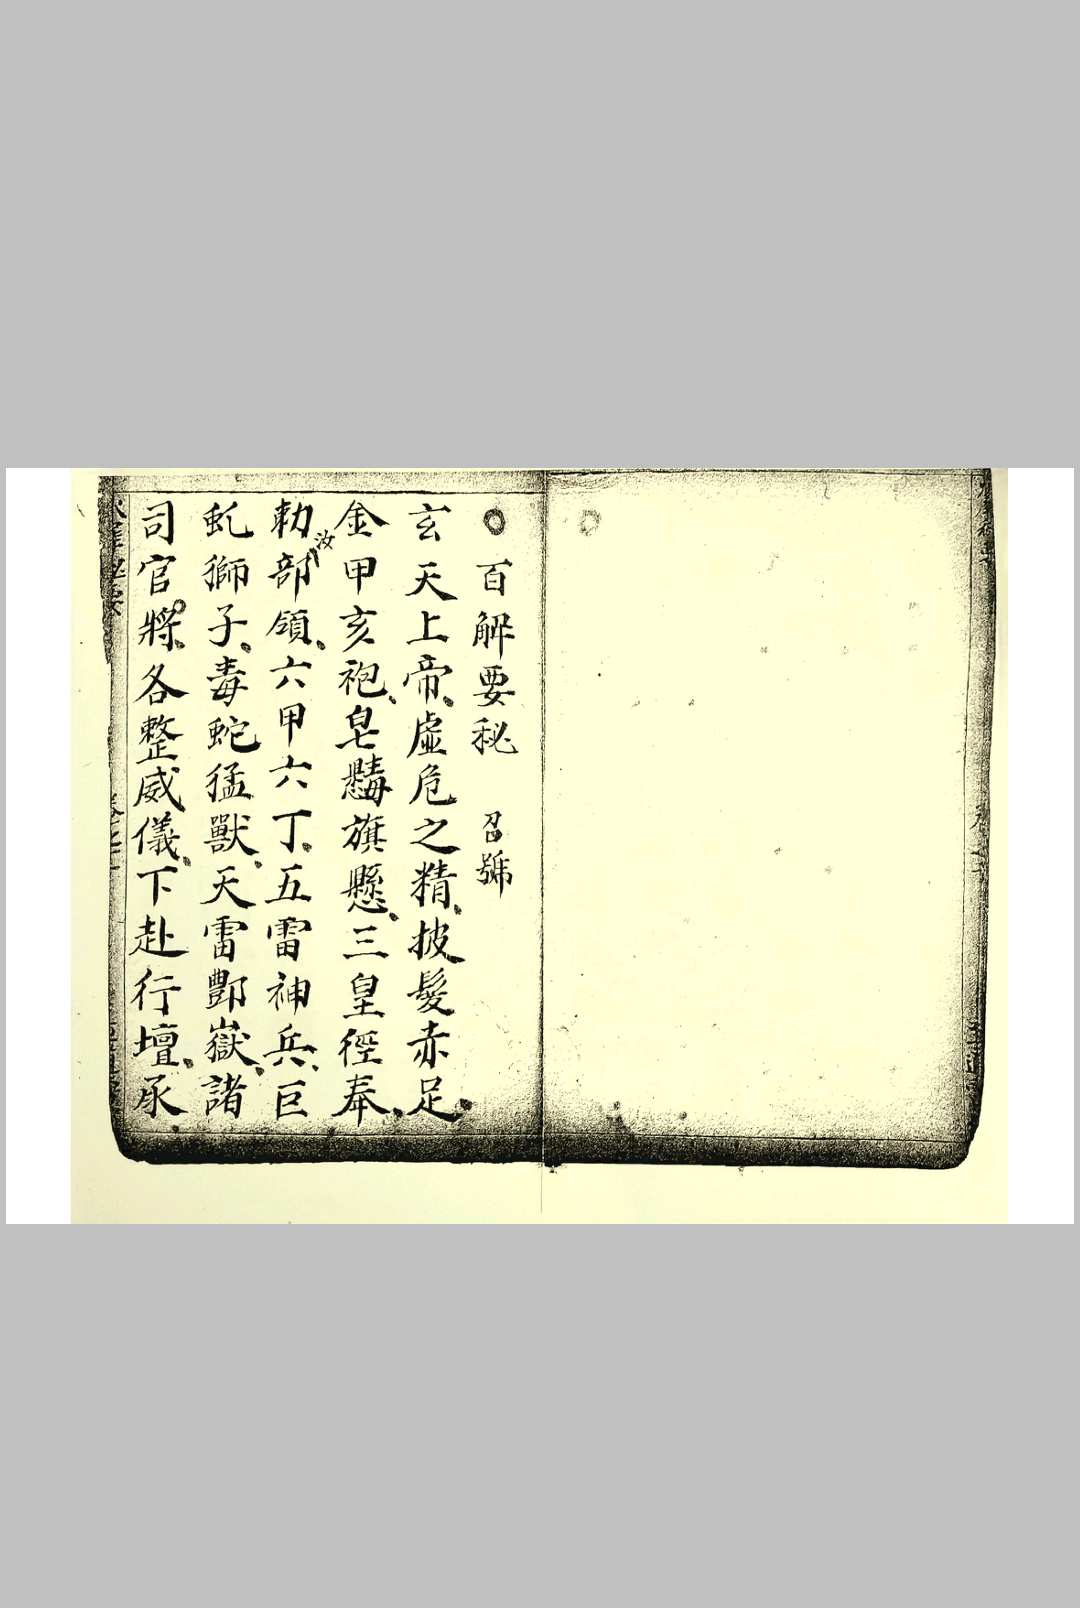 百解要秘 召號
玄天上帝虛危之精披髮赤足
金甲亥袍皂纛旗懸三皇徑奉
勅汝部領六甲六丁五雷神兵巨
虬獅子毒蛇猛獸天雷酆嶽諸
司官將各整威儀下赴行壇承